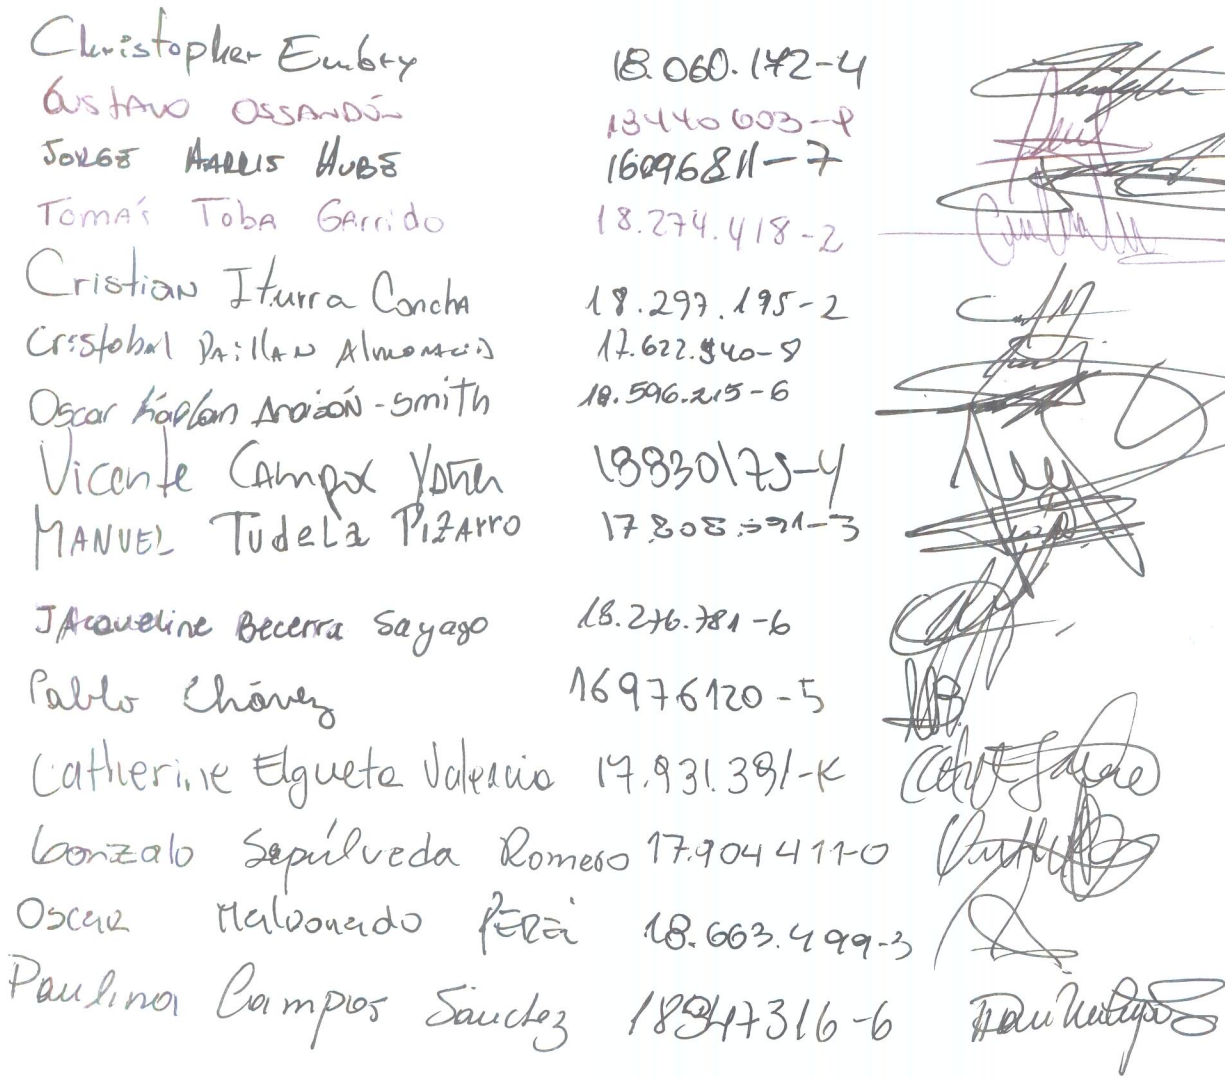 Christopher Embry 18.060.172-4
Gustavo OSSANDÓN 13440603-9
JORGE HARRIS HUBE 16096811-7
TOMÁS TobA GArrido 18.274.418-2
Cristian Iturra Concha 18.297.195-2
Cristobal PAillAN Almonacid 17.622.940-8
Oscar Kaplan 18.596.215-6
Vicente CAmpos 18830175-4
MANUEL TudeLa PIZArro
JAcqueline Becerra Sayago 18.276.781-6
Pablo Chávez 16976120-5
Catherine Elgueta Valencia 17.931.391-K
Gonzalo Sepúlveda Romero 17.904411-0
OSCAR Maldonado 18.663.499-3
Paulina Campos Sánchez 18947316-6